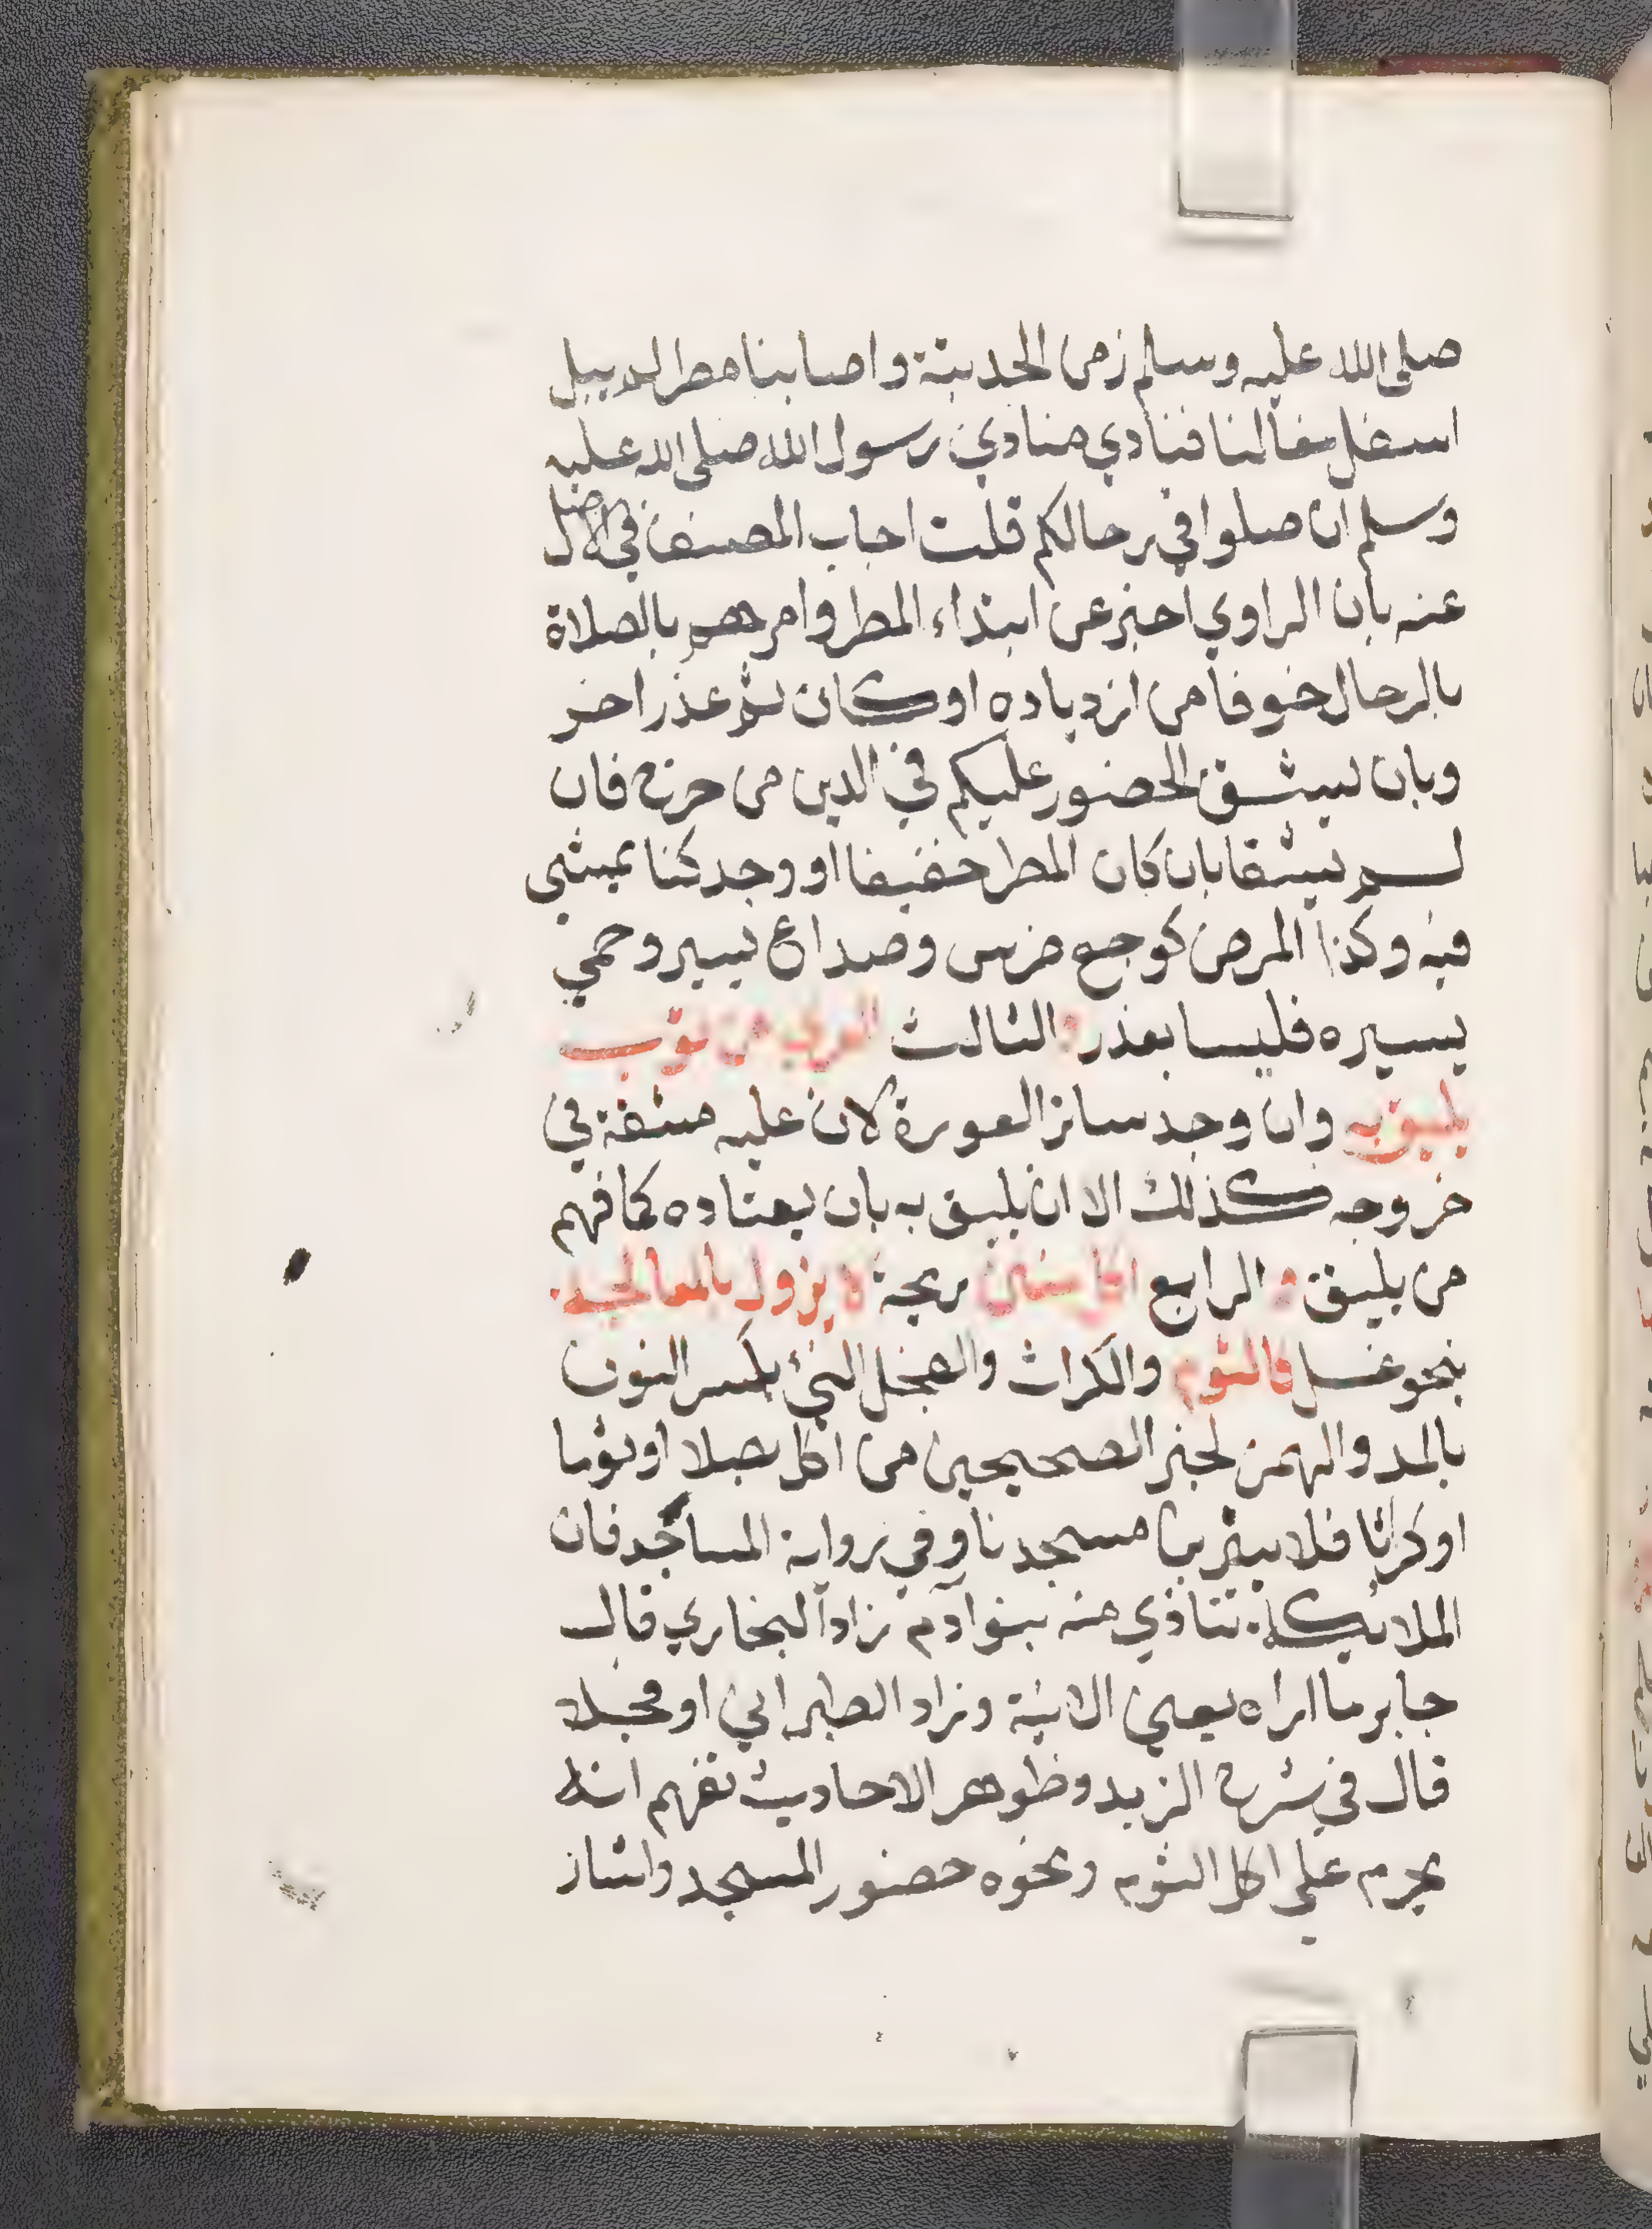 صلى الله عليه وسلم زمن الحديبية واصابنا مطر لم يبل
اسفل نعالنا فنادي منادي رسول الله صلى الله عليه
وسلم ان صلوا في رحالكم قلت اجاب المصنف في الاصل
عنه بان الراوي اخبر عن ابتداء المطر وامرهم بالصلاة
بالرحال خوفا من ازدياده او كان ثم عذر اخر
وبان يشق الحضور عليكم في الدين من حرج فان
لم يشقا بان كان المطر خفيفا او وجد كنا يمشي
فيه وكذا المرض كوجع ضرس وصداع يسير وحمي
يسيره فليسا بعذر والثالث العري عن ثوب
يليق به وان وجد ساتر العورة لان عليه مشقة في
خروجه كذلك الا ان يليق به بان يعتاده كما فهم
من يليق و الرابع اكل منتن ريحة لا يزول بالمعالجه
بنحو غسل كالثوم والكراث والفجل النئ بكسر النون
بالمد والهمز لخبر الصحيحين من اكل بصلا او ثوما
او كراثا فلا يقربن مسجدنا وفي رواية المساجد فان
الملائكة تتاذي منه بنوا آدم زاد البخاري قال
جابر ما اراه يعني الا نيئة وزاد الطبراني او فجلا
قال في شرح الزبد وظوهر الاحاديث تفهم انه
يحرم علي اكل الثوم ونحوه حضور المسجد واشار